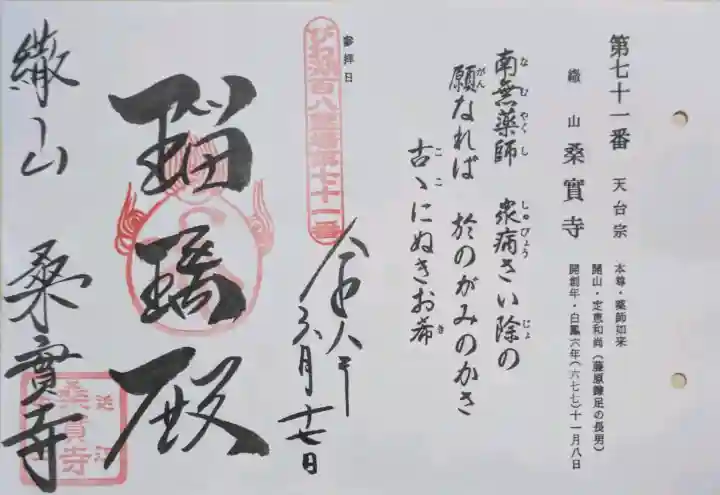 第七十一番　天台宗
繖山　桑實寺
本尊・薬師如来
開山・定恵和尚（藤原鎌足の長男）
開創年・白鳳六年（六七七）十一月八日
南無薬師　衆病さい除の
なむやくし　しゅびょう　じょ
願なれば　於のがみのかさ
がん
古ゝにぬきお希
ここ　き
参拝日
びわ湖百八霊場第七十一番
八月十七日
瑠璃殿
繖山　桑實寺
近江
桑實寺